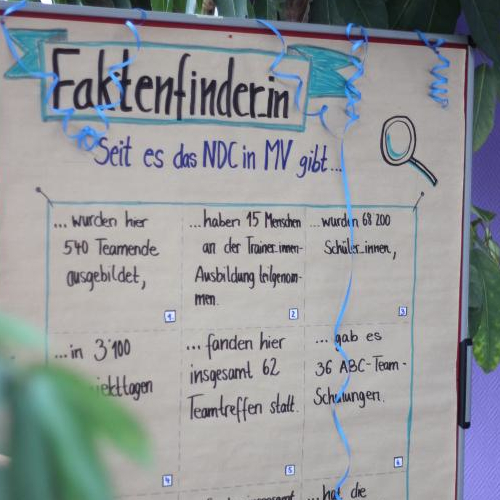 Faktenfinder_in
Seit es das NDC in MV gibt...
... wurden hier
540 Teamende
ausgebildet,
1
...haben 15 Menschen
an der Trainer_innen-
Ausbildung teilgenom-
men
2
...wurden 68'200
Schüler_innen,
3
...in 3'100
4
...fanden hier
insgesamt 62
Teamtreffen statt.
5
... gab es
36 ABC-Team-
Schulungen.
6
insgesamt
... hat die